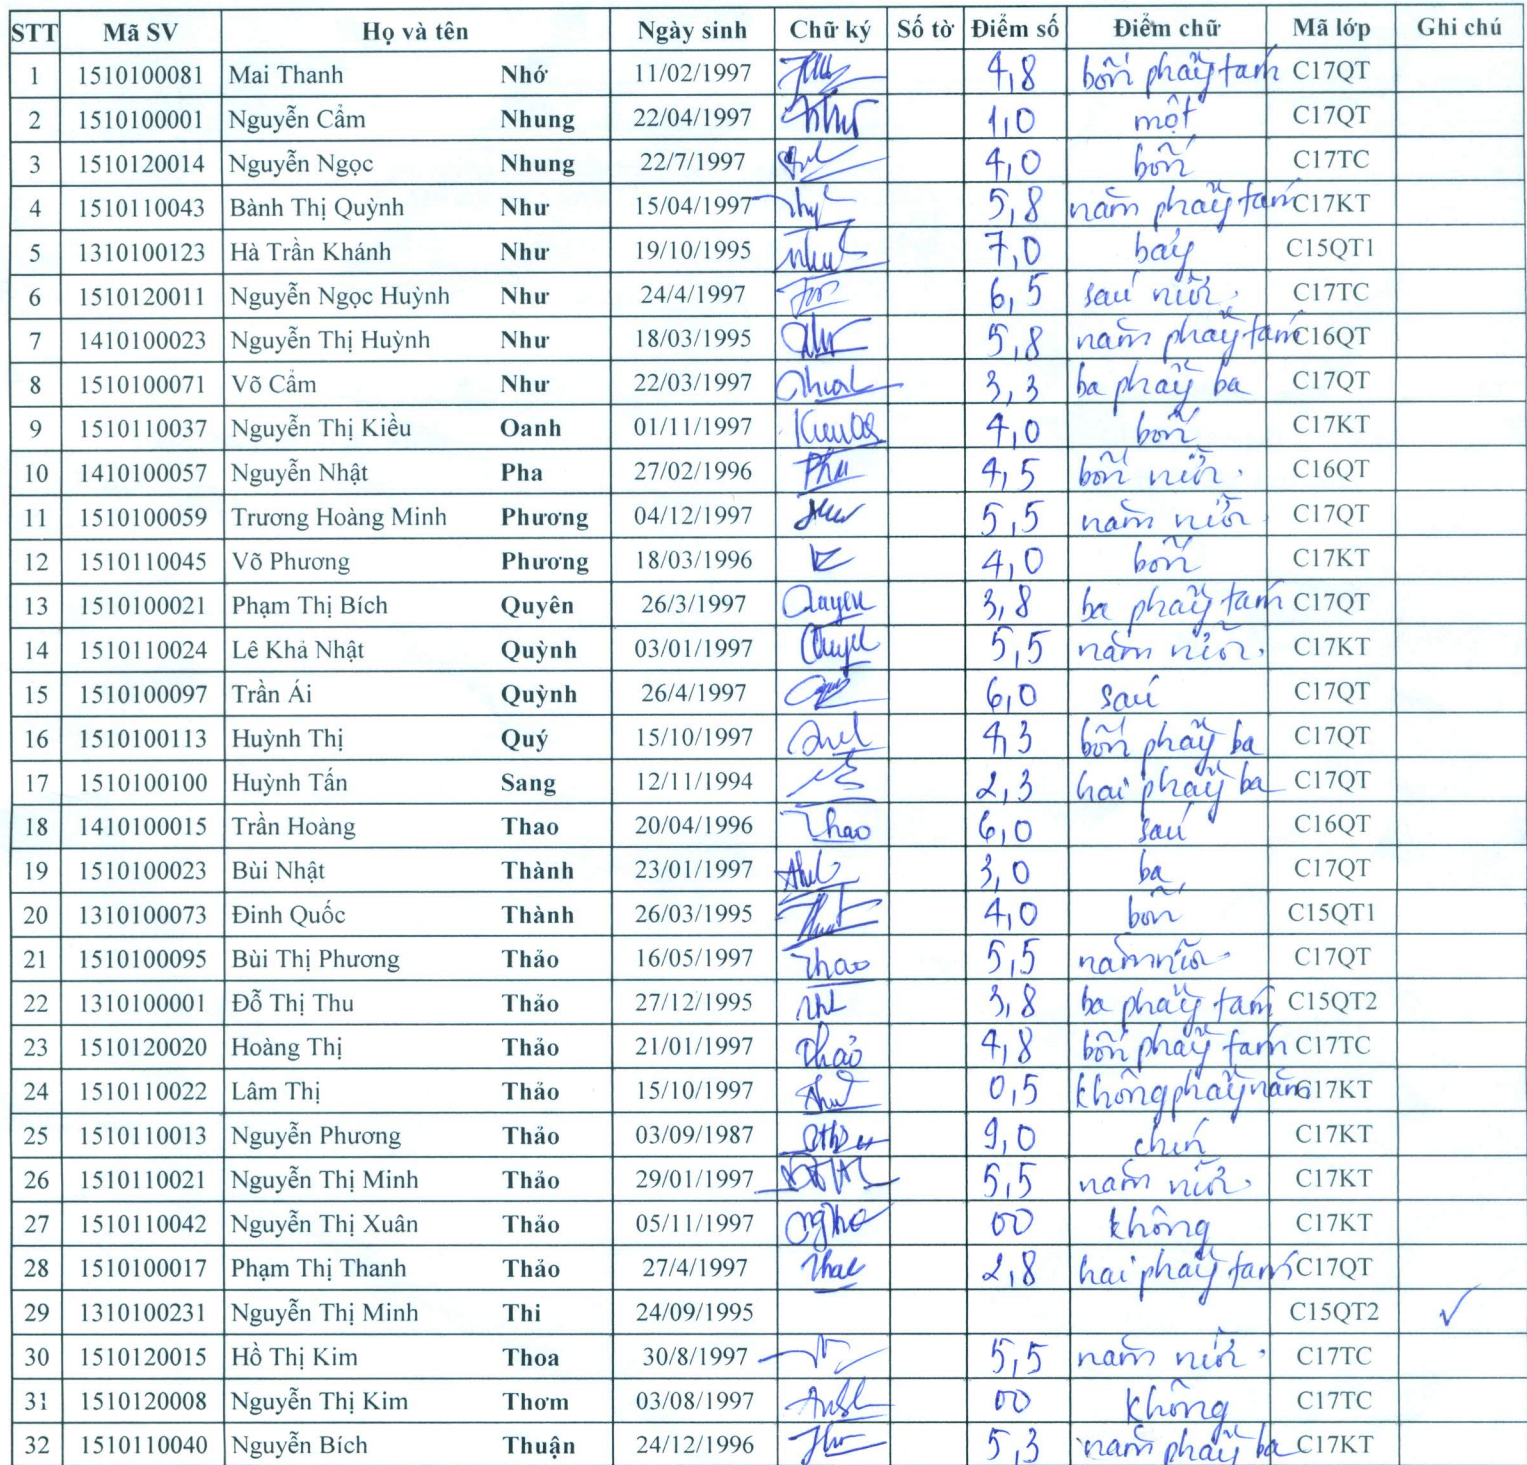 STT Mã SV Họ và tên Ngày sinh Chữ ký Số tờ Điểm số Điểm chữ Mã lớp Ghi chú
1 1510100081 Mai Thanh Nhớ 11/02/1997 4,8 bốn phẩy tám C17QT
2 1510100001 Nguyễn Cẩm Nhung 22/04/1997 1,0 một C17QT
3 1510120014 Nguyễn Ngọc Nhung 22/7/1997 4,0 bốn C17TC
4 1510110043 Bành Thị Quỳnh Như 15/04/1997 5,8 năm phẩy tám C17KT
5 1310100123 Hà Trần Khánh Như 19/10/1995 7,0 bảy C15QT1
6 1510120011 Nguyễn Ngọc Huỳnh Như 24/4/1997 6,5 sáu rưỡi. C17TC
7 1410100023 Nguyễn Thị Huỳnh Như 18/03/1995 5,8 năm phẩy tám C16QT
8 1510100071 Võ Cẩm Như 22/03/1997 3,3 ba phẩy ba C17QT
9 1510110037 Nguyễn Thị Kiều Oanh 01/11/1997 4,0 bốn C17KT
10 1410100057 Nguyễn Nhật Pha 27/02/1996 Pha 4,5 bốn rưỡi. C16QT
11 1510100059 Trương Hoàng Minh Phương 04/12/1997 5,5 năm rưỡi. C17QT
12 1510110045 Võ Phương Phương 18/03/1996 4,0 bốn C17KT
13 1510100021 Phạm Thị Bích Quyên 26/3/1997 3,8 ba phẩy tám C17QT
14 1510110024 Lê Khả Nhật Quỳnh 03/01/1997 5,5 năm rưỡi. C17KT
15 1510100097 Trần Ái Quỳnh 26/4/1997 6,0 sáu C17QT
16 1510100113 Huỳnh Thị Quý 15/10/1997 4,3 bốn phẩy ba C17QT
17 1510100100 Huỳnh Tấn Sang 12/11/1994 2,3 hai phẩy ba C17QT
18 1410100015 Trần Hoàng Thao 20/04/1996 Thao 6,0 sáu C16QT
19 1510100023 Bùi Nhật Thành 23/01/1997 3,0 ba C17QT
20 1310100073 Đinh Quốc Thành 26/03/1995 4,0 bốn C15QT1
21 1510100095 Bùi Thị Phương Thảo 16/05/1997 Thao 5,5 năm rưỡi. C17QT
22 1310100001 Đỗ Thị Thu Thảo 27/12/1995 3,8 ba phẩy tám C15QT2
23 1510120020 Hoàng Thị Thảo 21/01/1997 Thảo 4,8 bốn phẩy tám C17TC
24 1510110022 Lâm Thị Thảo 15/10/1997 0,5 không phẩy năm C17KT
25 1510110013 Nguyễn Phương Thảo 03/09/1987 9,0 chín C17KT
26 1510110021 Nguyễn Thị Minh Thảo 29/01/1997 5,5 năm rưỡi. C17KT
27 1510110042 Nguyễn Thị Xuân Thảo 05/11/1997 00 không C17KT
28 1510100017 Phạm Thị Thanh Thảo 27/4/1997 2,8 hai phẩy tám C17QT
29 1310100231 Nguyễn Thị Minh Thi 24/09/1995 C15QT2 ✓
30 1510120015 Hồ Thị Kim Thoa 30/8/1997 5,5 năm rưỡi. C17TC
31 1510120008 Nguyễn Thị Kim Thơm 03/08/1997 00 không C17TC
32 1510110040 Nguyễn Bích Thuận 24/12/1996 5,3 năm phẩy ba C17KT